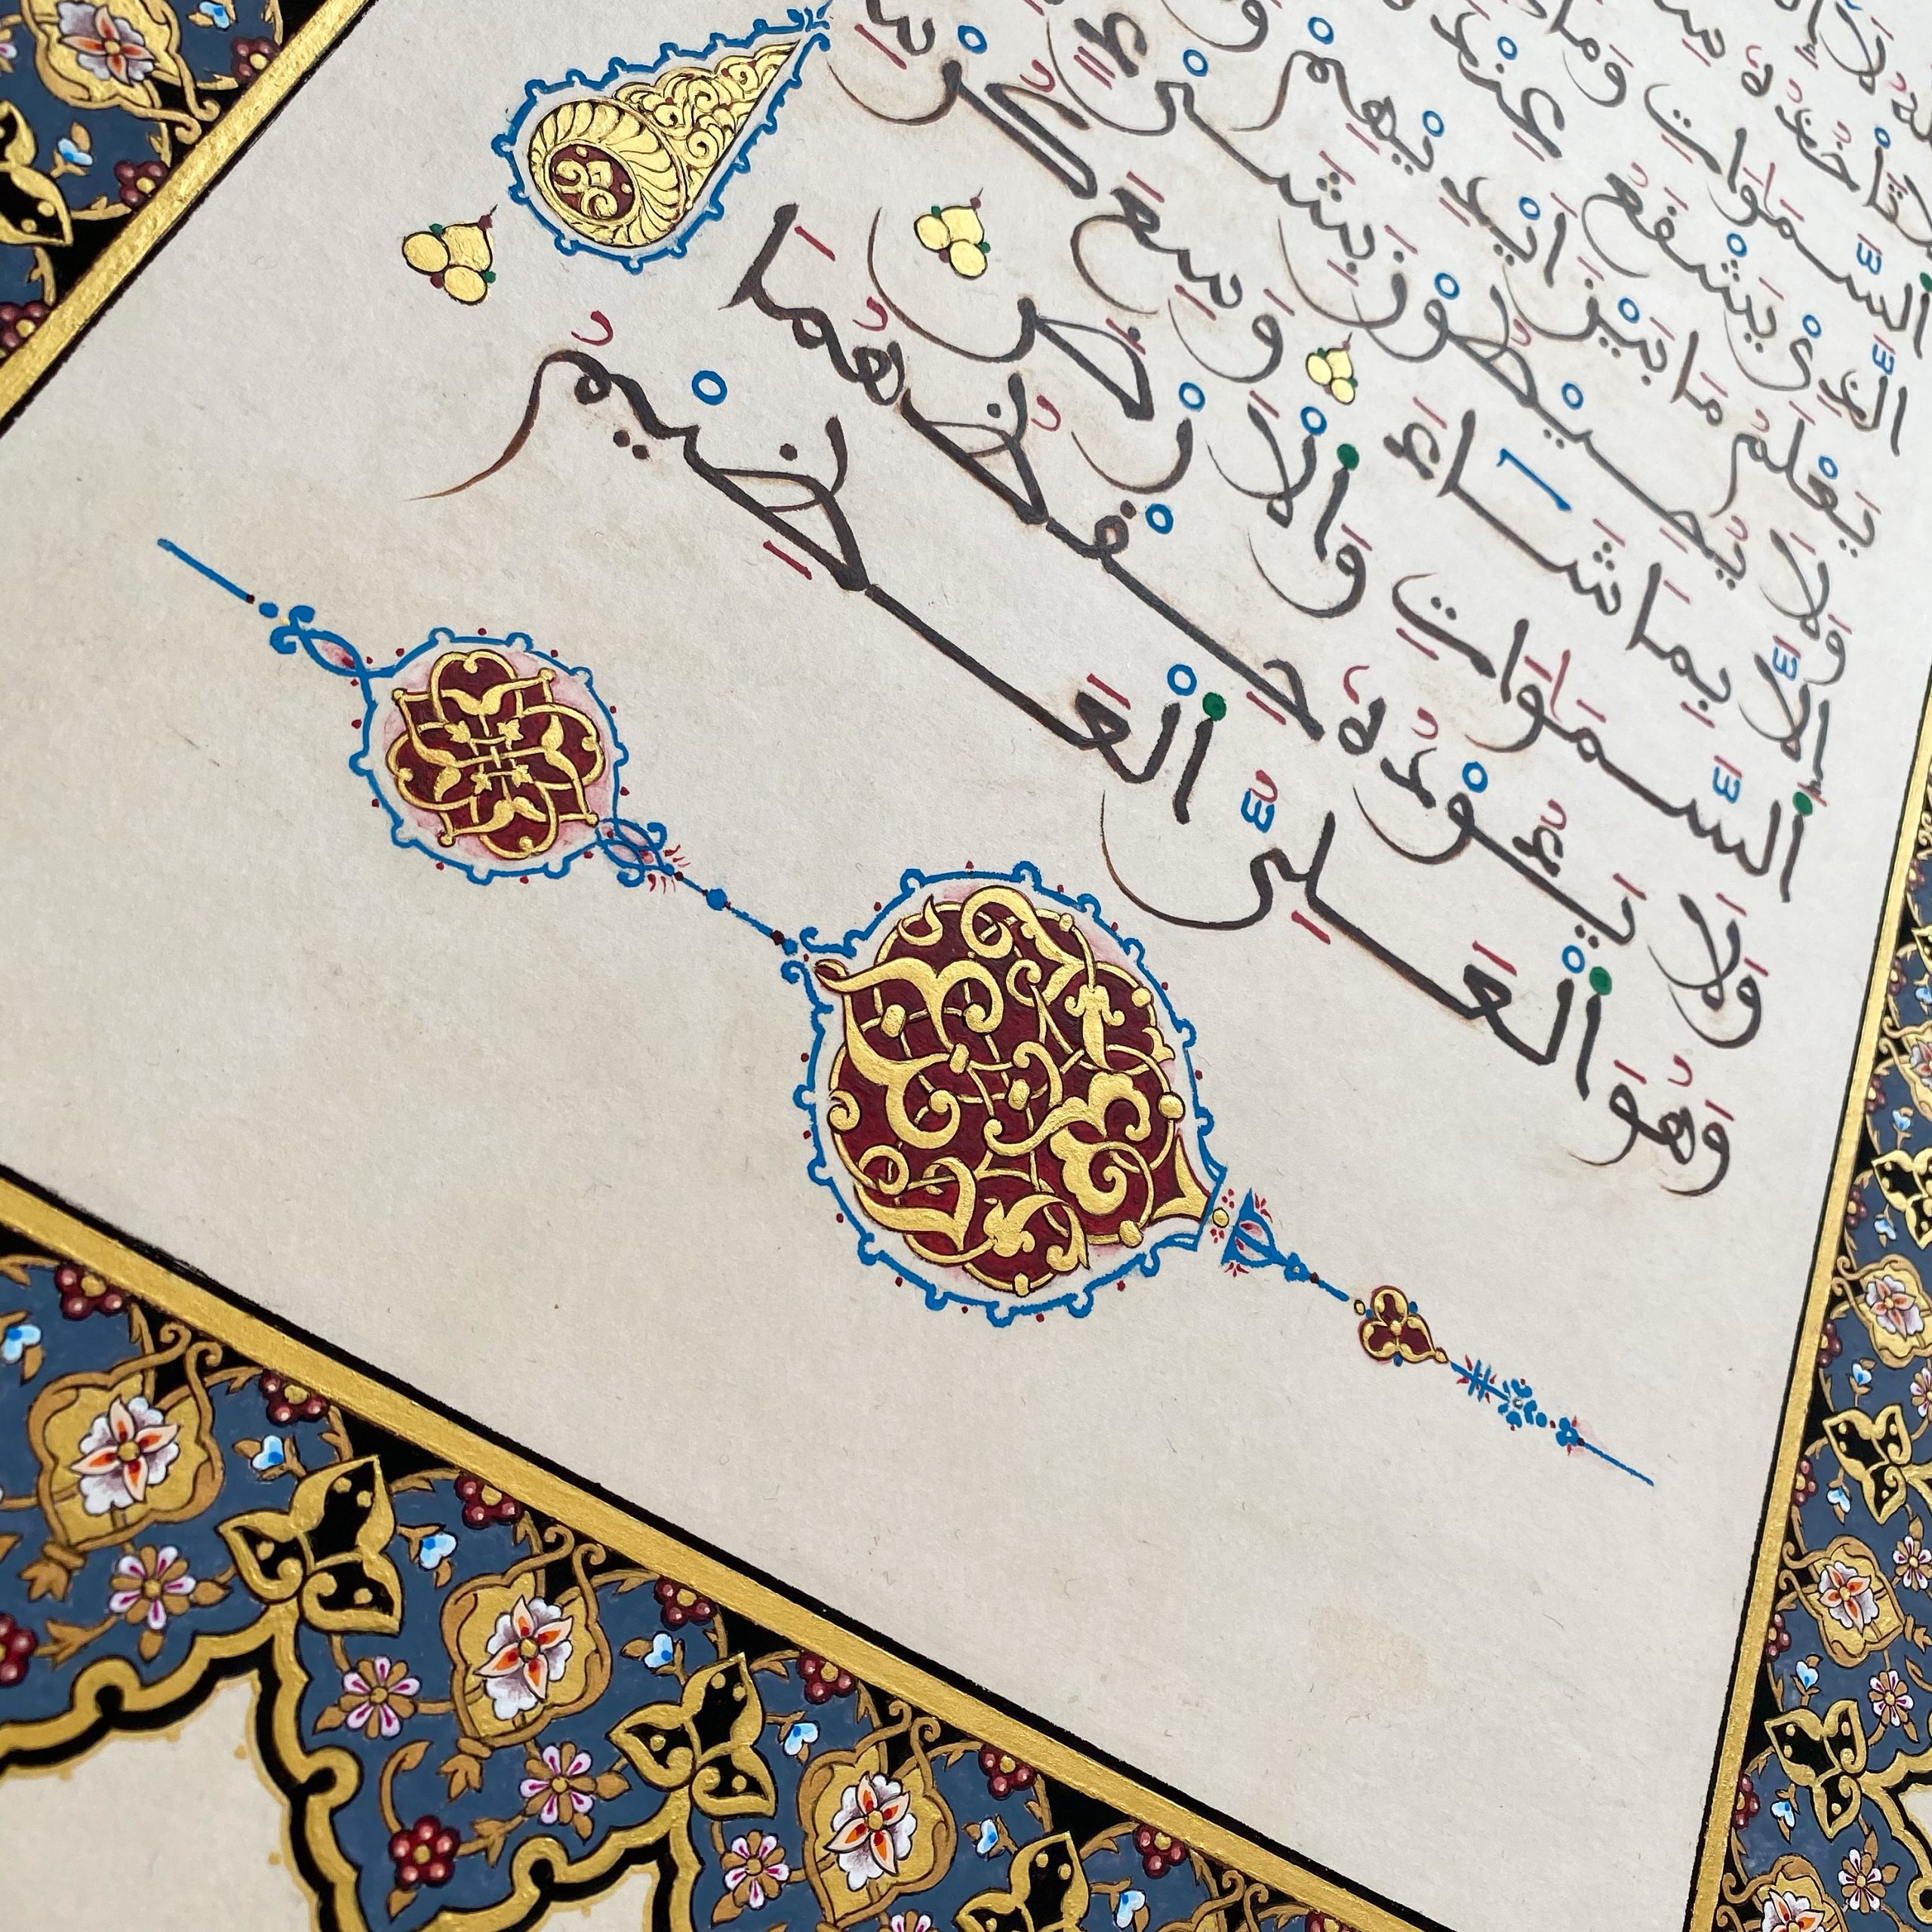 تَأْخُذُهُ سِنَةٌ
السَّمَٰوَٰتِ وَمَا
الَّذِى يَشْفَعُ عِنْدَهُ
يَعْلَمُ مَا بَيْنَ أَيْدِيهِمْ وَ
وَلَا يُحِيطُونَ بِشَىْءٍ
إِلَّا بِمَا شَآءَ وَسِعَ كُرْسِ
السَّمَٰوَٰتِ وَالْأَرْضَ
وَلَا يَـُٔودُهُ حِفْظُهُمَا
وَهُوَ الْعَلِىُّ الْعَظِيمُ